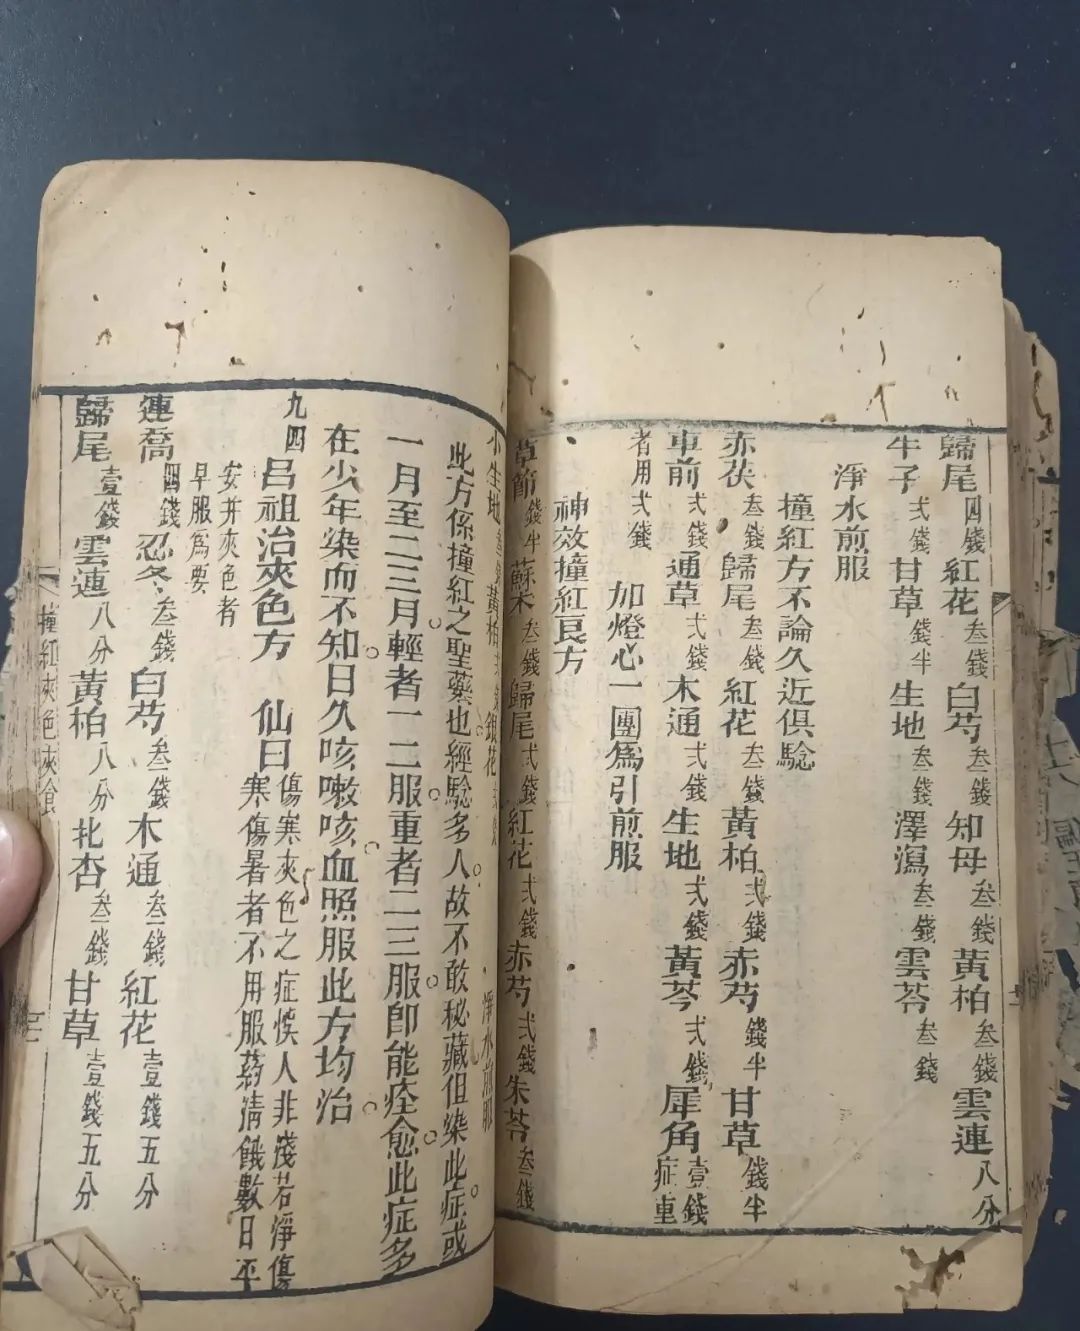 歸尾四錢紅花叁錢白芍叁錢知母叁錢黃柏叁錢雲連八分
牛子弍錢甘草錢半生地叁錢澤瀉叁錢雲苓叁錢
淨水煎服
撞紅方不論久近俱騐
赤茯叁錢歸尾叁錢紅花叁錢黃柏弍錢赤芍錢半甘草錢半
車前弍錢通草弍錢木通弍錢生地弍錢黃芩弍錢犀角壹錢症重
者用弍錢 加燈心一團爲引煎服
神效撞紅良方
草節錢半蘇木叁錢歸尾弍錢紅花弍錢赤芍弍錢朱苓叁錢
小生地叁錢黃柏銀花 淨水煎服
此方係撞紅之聖藥也經騐多人故不敢秘藏但染此症或
一月至二三月輕者一二服重者二三服卽能痊愈此症多
在少年染而不知日久咳嗽咳血照服此方均治
九四 呂祖治夾色方 仙曰 傷寒夾色之症悞人非淺若淨傷
寒傷暑者不用服葯清餓數日平
安并夾色者
早服爲要
連喬四錢忍冬叁錢白芍叁錢木通叁錢紅花壹錢五分
歸尾壹錢雲連八分黃柏八分北杏叁錢甘草壹錢五分
撞紅夾色夾食